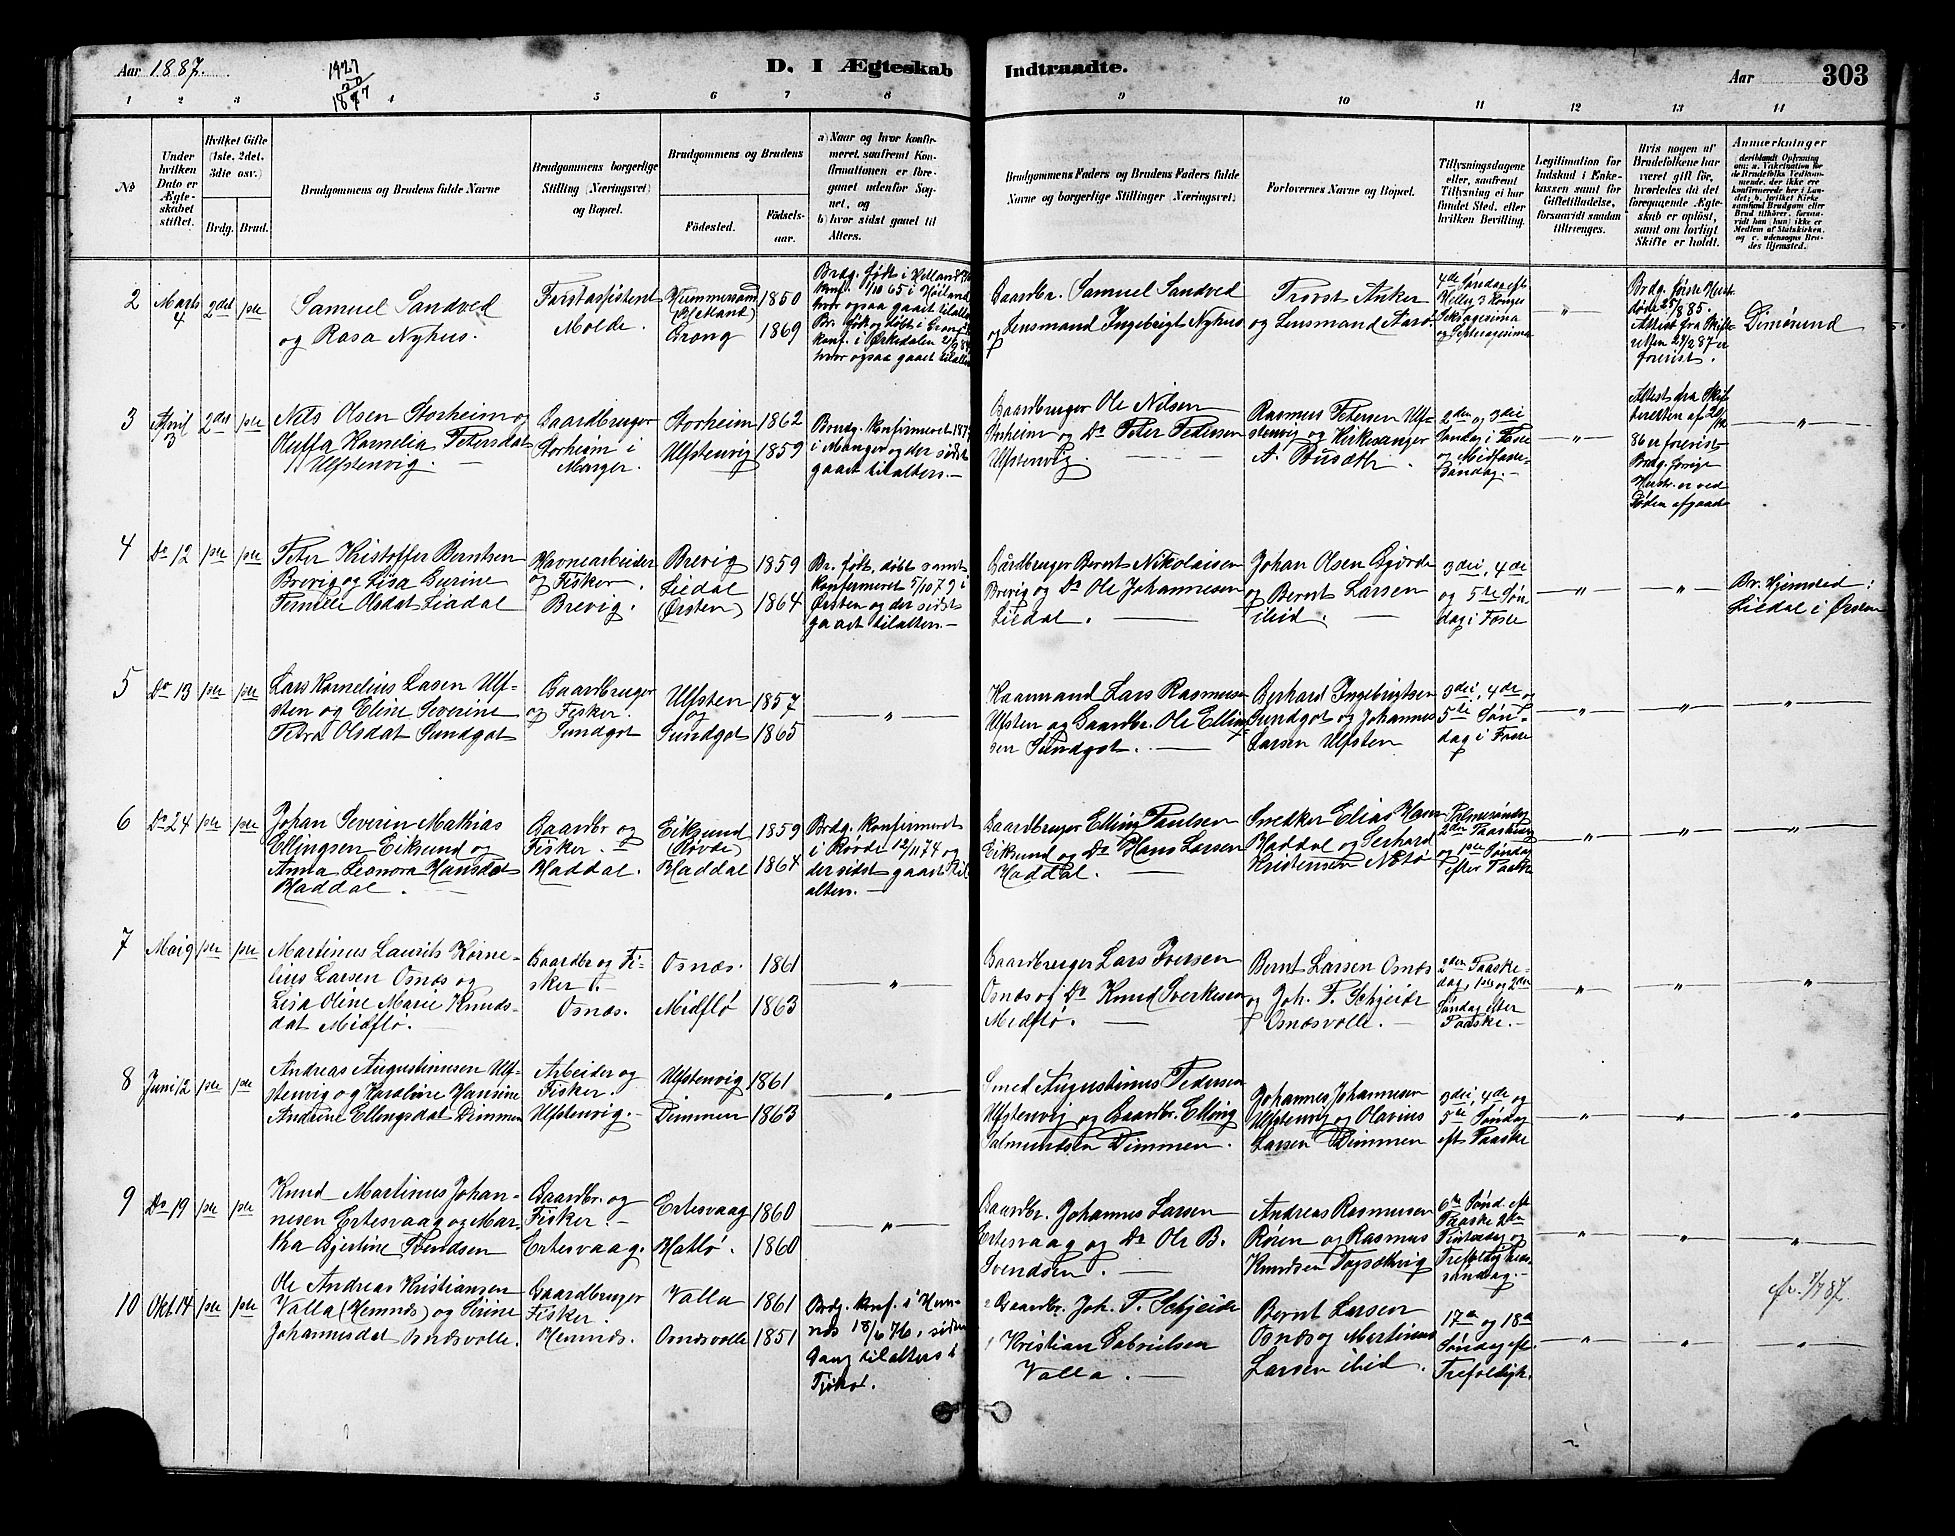 Aar 1887.
1927
20
1887
D. I Ægteskab Indtraadte.
Aar
303
1 2 3 4 5 6 7 8 9 10 11 12 13 14
No
Under hvilken Dato er Ægteskabet stiftet.
Hvilket Gifte (1ste, 2det, 3die osv.)
Brdg. Brud.
Brudgommens og Brudens fulde Navne
Brudgommens borgerlige Stilling (Næringsvei) og Bopæl.
Brudgommens og Brudens
Fødested.
Fødselsaar.
a) Naar og hvor konfirmeret, saafremt Konfirmationen er foregaaet udenfor Sognet, og
b) hvor sidst gaaet til Alters.
Brudgommens Faders og Brudens Faders fulde Navne og borgerlige Stillinger (Næringsvei)
Forlovernes Navne og Bopæl.
Tillysningsdagene eller, saafremt Tillysning ei har fundet Sted, efter hvilken Bevilling.
Legitimation for Indskud i Enkekassen samt for Giftetilladelse, forsaavidt saadan tiltrænges.
Hvis nogen af Brudefolkene har været gift før, hvorledes da det foregaaende Ægteskab er opløst, samt om lovligt Skifte er holdt.
Anmærkninger
2 Marts 4 2det 1ste
Samuel Sandved
og Rasa Nyhus.
Forstassistent
Molde.
Grong
1850
1869
Brdg. født i Hetland
konf. 1/10 65 i Høiland
hvor ogsaa gaaet tilalters
Br. født og døbt i Grong
konf. i Ørkedalen
hvor ogsaa gaaet tilalters
Gaardbr. Samuel Sandved
og Lensmand Ingebrigt Nyhus
Forst. Anker
og Lensmand Aarø.
4de Søndag eft
Hellig 3 Konger
Seksagesima
og Septuagesima
"
Brdg. første Hustru
døde 25/ 885.
Attest fra Skifte
retten 2/2 87 er
forevist.
Dimøsund
3 April 3 2det 1ste
Nils Olsen Storheim og
Oluffa Kornelia Petersdat
Ulfstenvig. —
Gaardbruger
Storheim i
Manger.
Storheim
Ulfstenvig
1862
1859
Brudg. Konfirmeret 1877
i Manger og der sidst
gaaet tilalters.—
Gaardbruger Ole Nilsen
Storheim og Do Peter Pedersen
Ulfstenvig. —
Rasmus Petersen Ulf-
stenvig og Kirkesanger
A. Busæth.
2den og 3die
Søndag i Faste
og Midfaste-
Søndag.—
"
Attest fra Skif-
teretten af
86 er forevist
Brdg. forrige
Hustr. er ved
Døden afgaaet
"
4 Do 12 1ste 1ste
Peter Kristoffer Berntsen
Brevig og Lisa Gurine
Pernille Olsdat Liadal
Havnearbeider
og Fisker.
Brevig.
Brevig
Liedal
(Ørsten)
1859
1864
Br. født, døbt samt
konfirmeret 5/10 79 i
Ørsten og der sidst
gaaet tilalters.—
Gårdbruger Bernt Nikolaisen
Brevig og Do Ole Johannesen
Liedal. —
Johan Olsen Gjørde
og Bernt Larsen
ibid. —
3die, 4de
og 5te Søn-
dag i Faste
"
"
Br. Hjemsted:
Liedal i Ørsten
5 Do 13 1ste 1ste
Lars Kornelius Lasen Ulf-
sten og Eline Severine
Petra Olsdat Sundgot
Gaardbruger
og Fisker.
Sundgot
Ulfsten
og
Sundgot
1857
1865
"
Kaarmand Lars Rasmusen
Ulfsten og Gaardbr. Ole Elling-
sen Sundgot. —
Gerhard Ingebrigtsen
Sundgot og Johannes
Larsen Ulfsten
3die, 4de og
5te Søn-
dag i Faste
"
"
"
6 Do 24 1ste 1ste
Johan Severin Mathias
Ellingsen Eiksund og
Anna Leonora Hansdat
Haddal. —
Gaardbr og
Fisker. —
Haddal.
Eiksund
(Røvde)
Haddal
1859
1864
Brdg. konfirmeret
i Røvde 12/11 74 og
der sidst gaaet til
alters. —
Gaardbruger Elling Paulsen
Eiksund og Do Hans Larsen
Haddal. —
Snedker Elias Hansen
Haddal og Gerhard
Kristensen Nætø
Palmesøndag
2den Paaskedag
og 1ste Søndag
efter Paaske
"
"
"
7 Mai 9 1ste 1ste
Martinus Laurits Korne-
lius Larsen Osnæs og
Lisa Oline Marie Knuds-
dat Midflø. —
Gaardbr og Fi-
sker. —
Osnæs.
Osnæs.
Midflø
1861
1863
"
Gaardbruger Lars Iversen
Osnæs og Do Knud Sverkesen
Midflø. —
Bernt Larsen Osnæs
og Joh. P. Schjeide
Osnæsvolle. —
2den Paaske-
dag, 1ste og 2den
Søndag efter
Paaske.—
"
"
"
8 Juni 12 1ste 1ste
Andreas Augustinusen Ulf-
stenvig og Karoline Hansine
Andrine Ellingsdat Dimmen
Arbeider og
Fisker.
Ulfstenvig.
Ulfstenvig
Dimmen
1861
1863
"
Smed Augustinus Pedersen
Ulfstenvig og Gaardbr. Elling
Salmundsen Dimmen.
Johannes Johannesen
Ulfstenvig og Olavius
Larsen Dimmen
3die, 4de og
5te Søndag
eft Paaske
"
"
"
9 Do 19 1ste 1ste
Knud Martinus Johan-
nesen Ertesvaag og Mar-
tha Gjertine Svendsen
Gaardbr. og
Fisker. —
Ertesvaag.
Ertesvaag
Hatlø.
1860
1860
"
Gaardbr. Johannes Larsen
Ertesvaag og Do Ole B.
Svendsen. —
Andreas Rasmusen
Røren og Rasmus
Knudsen
6te Sønd. eft
Paaske 2den
Pintsedag og
Trefoldigheds-
søndag.—
"
"
"
10 Okt. 14 1ste 1ste
Ole Andreas Kristiansen
Valla (Hemnæs) og Sirine
Johannesdat Osnæsvolle.
Gaardbruger
Fisker.
Hemnæs.
Valla
Osnæsvolle
1861
1851
Brdg. konf. i Hem-
næs 18/6 76, sidste
Gang tilalters i
2 Gaardbr. Joh. P. Schjeide
1 Kristian Gabrielsen
Valla. —
Bernt Larsen
Osnæs og Martinus
Larsen ibid.
17de og 18de
Søndag eft.
Trefoldigh.
"
"
"